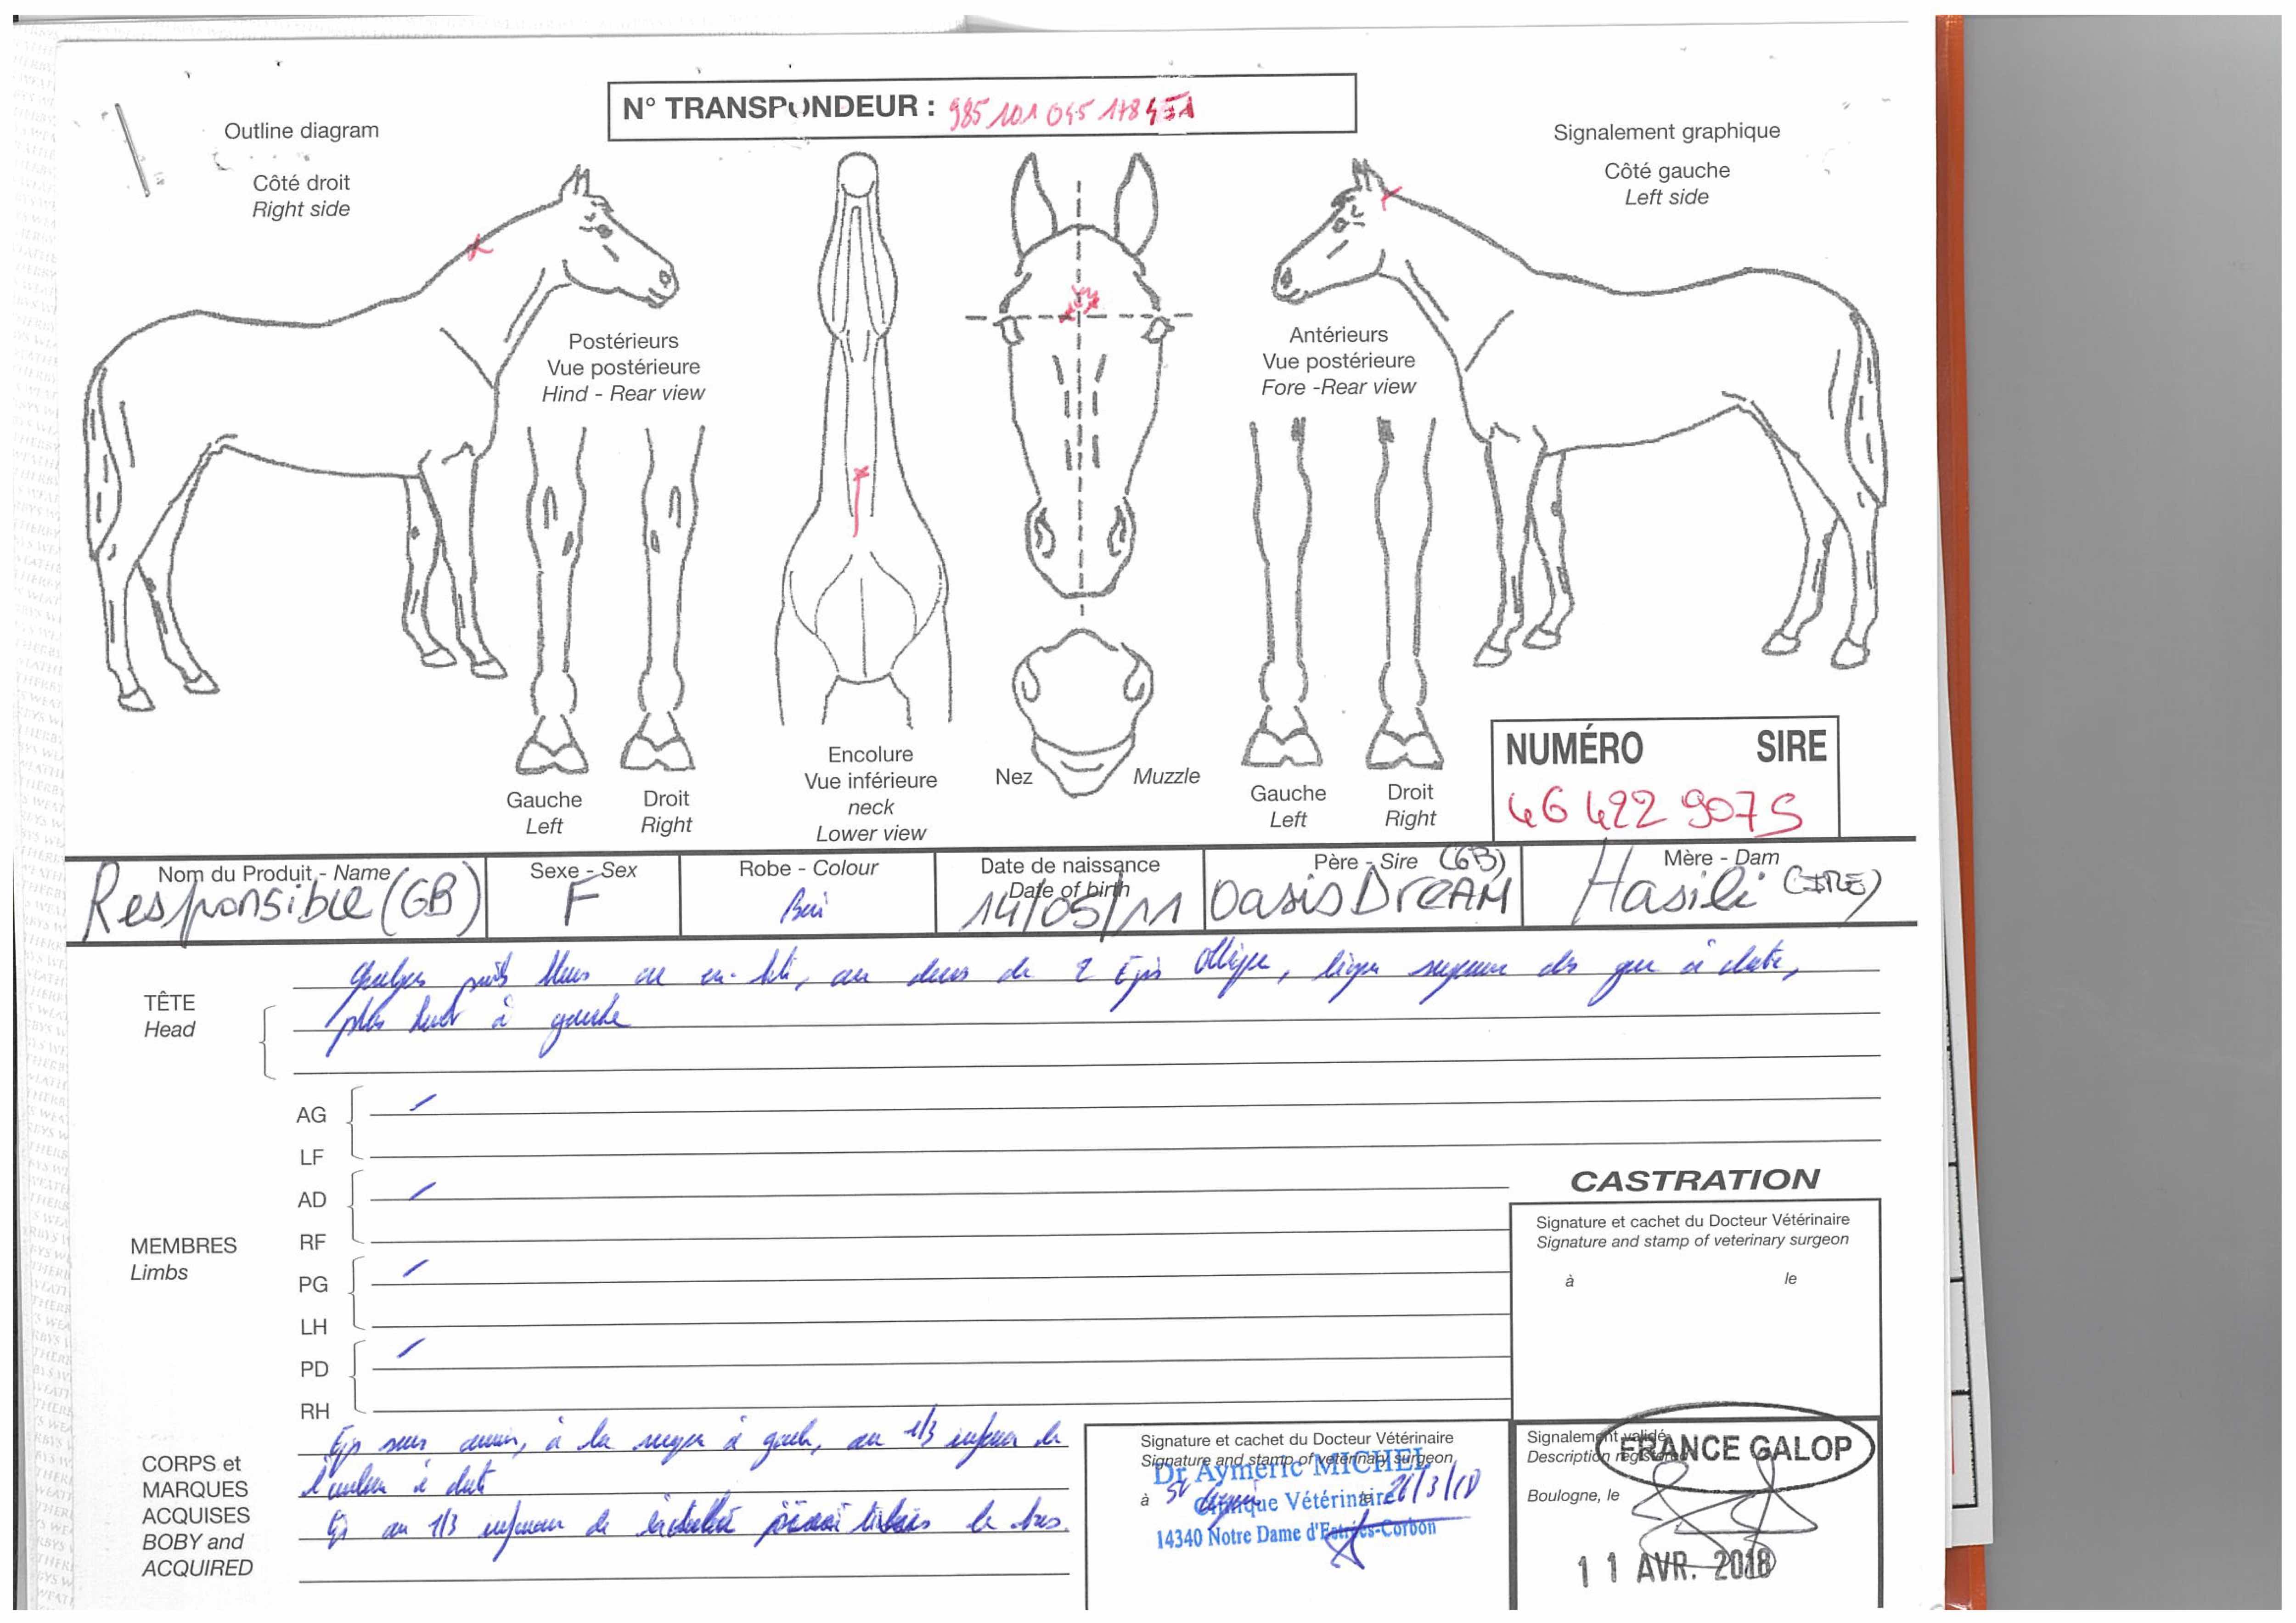 N° TRANSPONDEUR : 985 101 045 178 451
Outline diagram
Signalement graphique
Côté droit
Right side
Côté gauche
Left side
Postérieurs
Vue postérieure
Hind - Rear view
Antérieurs
Vue postérieure
Fore -Rear view
Gauche
Left
Droit
Right
Encolure
Vue inférieure
neck
Lower view
Nez
Muzzle
Gauche
Left
Droit
Right
NUMÉRO SIRE
46 422 907 S
Nom du Produit - Name
Responsible (GB)
Sexe - Sex
F
Robe - Colour
Bai
Date de naissance
Date of birth
14/05/11
Père - Sire (GB)
Oasis DreAM
Mère - Dam
Hasili (IRE)
TÊTE
Head
Quelques en-tête, au de 2 Epis oblique, ligne des à droite,
plus haut à gauche
MEMBRES
Limbs
AG
LF
AD
RF
PG
LH
PD
RH
CASTRATION
Signature et cachet du Docteur Vétérinaire
Signature and stamp of veterinary surgeon
à le
CORPS et
MARQUES
ACQUISES
BOBY and
ACQUIRED
Epi à la à gauche, au 1/3 inférieur de
à droite
Epi au 1/3 inférieur de le bas.
Signature et cachet du Docteur Vétérinaire
Signature and stamp of veterinary surgeon
Dr Aymeric MICHEL
à le 26/3/18
Clinique Vétérinaire
14340 Notre Dame d'Estrées-Corbon
Signalement validé
Description registered
FRANCE GALOP
Boulogne, le
11 AVR. 2018